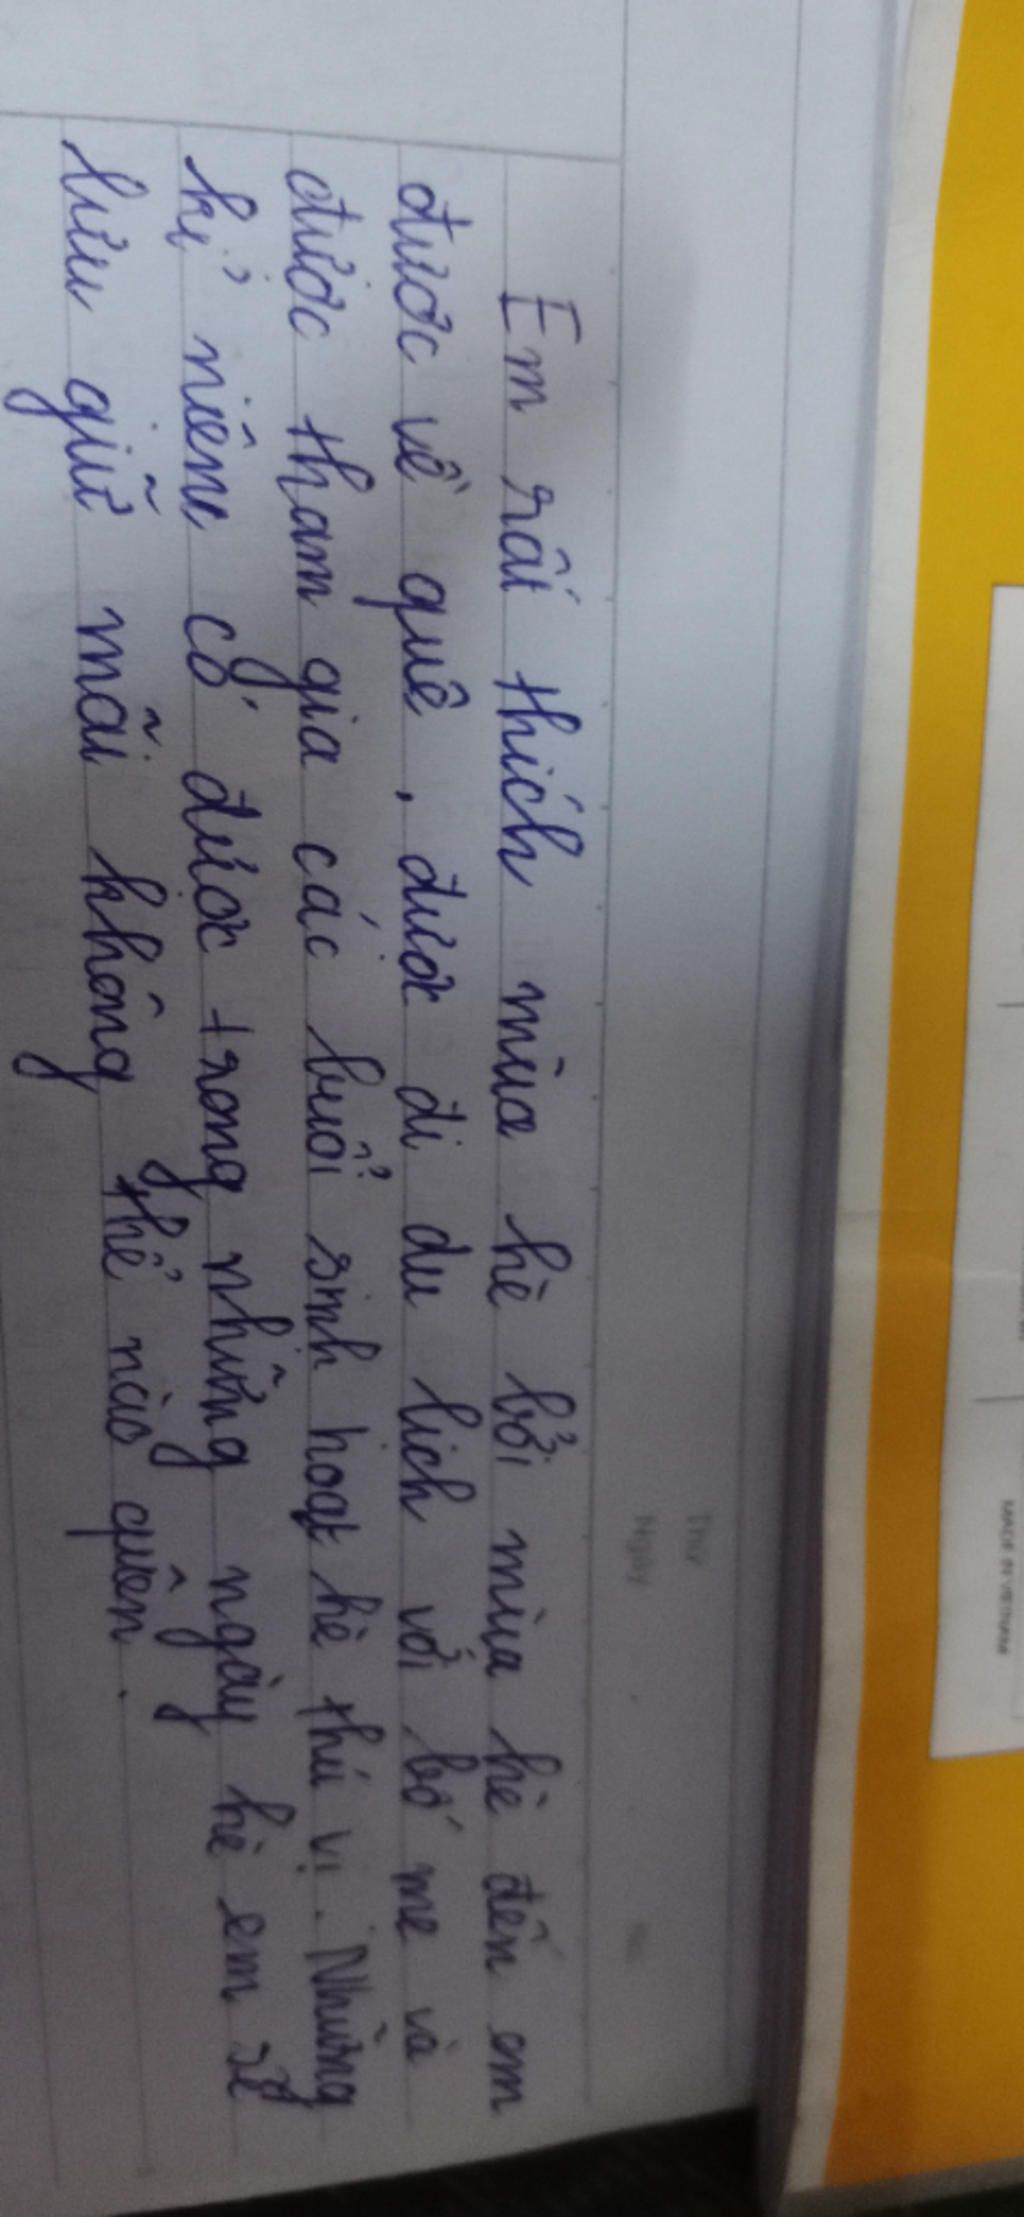 Thứ
Ngày
Em rất thích mùa hè bởi mùa hè đến em
được về quê, được đi du lịch với bố mẹ và
được tham gia các buổi sinh hoạt hè thú vị. Những
kỉ niệm có được trong những ngày hè em sẽ
lưu giữ mãi không thể nào quên.
MADE IN VIETNAM